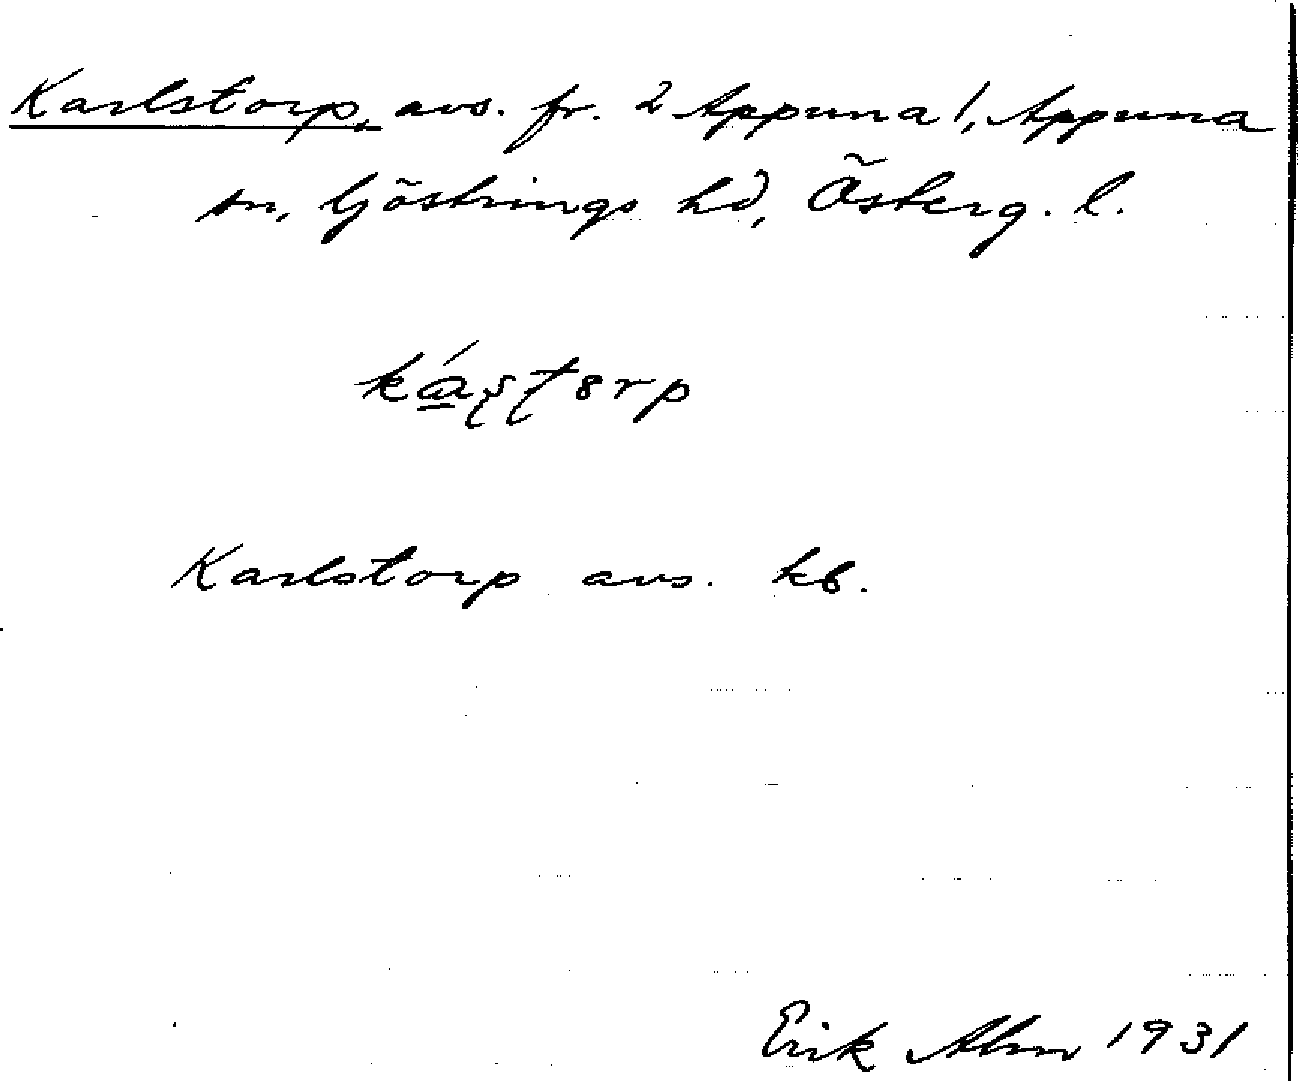 Karlstorp, avs. fr. 2 Appuna 1, Appuna
sn, Göstrings hd, Österg. l.
ká̱ʂʈɵrp
Karlstorp avs. kb.
Erik Alm 1931